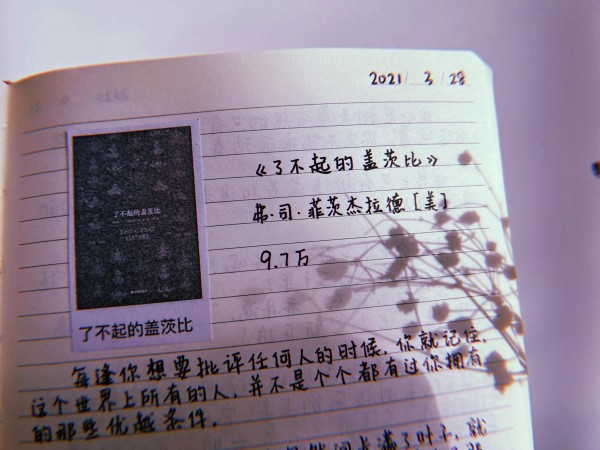 2021/ 3 / 28
《了不起的盖茨比》
了不起的盖茨比
THE GREAT
GATSBY
弗·司·菲茨杰拉德[美]
9.7万
了不起的盖茨比
每逢你想要批评任何人的时候,你就记住,
这个世界上所有的人,并不是个个都有过你拥有
的那些优越条件。
满了叶子,就